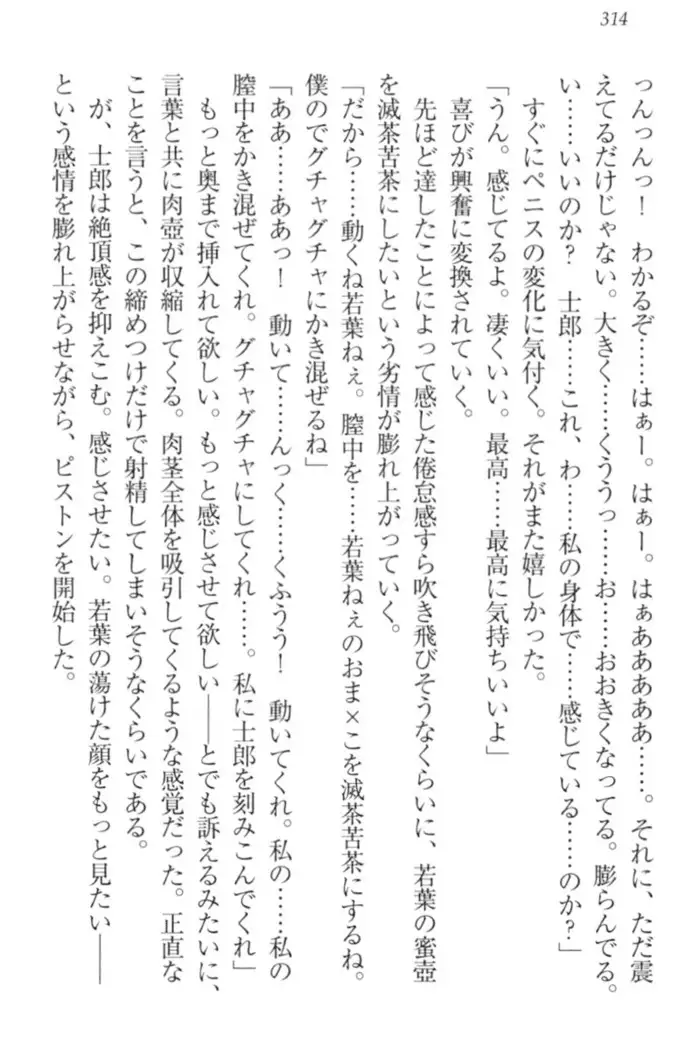 314
っんっんっ！　わかるぞ……はぁー。はぁー。はぁあああああ……。それに、ただ震
えてるだけじゃない。大きく……くううっ……お……おおきくなってる。膨らんでる。
い……いいのか？　士郎……これ、わ……私の身体で……感じている……のか？」
　すぐにペニスの変化に気付く。それがまた嬉しかった。
「うん。感じてるよ。凄くいい。最高……最高に気持ちいいよ」
　喜びが興奮に変換されていく。
　先ほど達したことによって感じた倦怠感すら吹き飛びそうなくらいに、若葉の蜜壺
を滅茶苦茶にしたいという劣情が膨れ上がっていく。
「だから……動くね若葉ねぇ。膣中を……若葉ねぇのおま×こを滅茶苦茶にするね。
僕のでグチャグチャにかき混ぜるね」
「ああ……ああっ！　動いて……んっく……くふうう！　動いてくれ。私の……私の
膣中をかき混ぜてくれ。グチャグチャにしてくれ……。私に士郎を刻みこんでくれ」
　もっと奥まで挿入れて欲しい。もっと感じさせて欲しい――とでも訴えるみたいに、
言葉と共に肉壺が収縮してくる。肉茎全体を吸引してくるような感覚だった。正直な
ことを言うと、この締めつけだけで射精してしまいそうなくらいである。
　が、士郎は絶頂感を抑えこむ。感じさせたい。若葉の蕩けた顔をもっと見たい――
という感情を膨れ上がらせながら、ピストンを開始した。